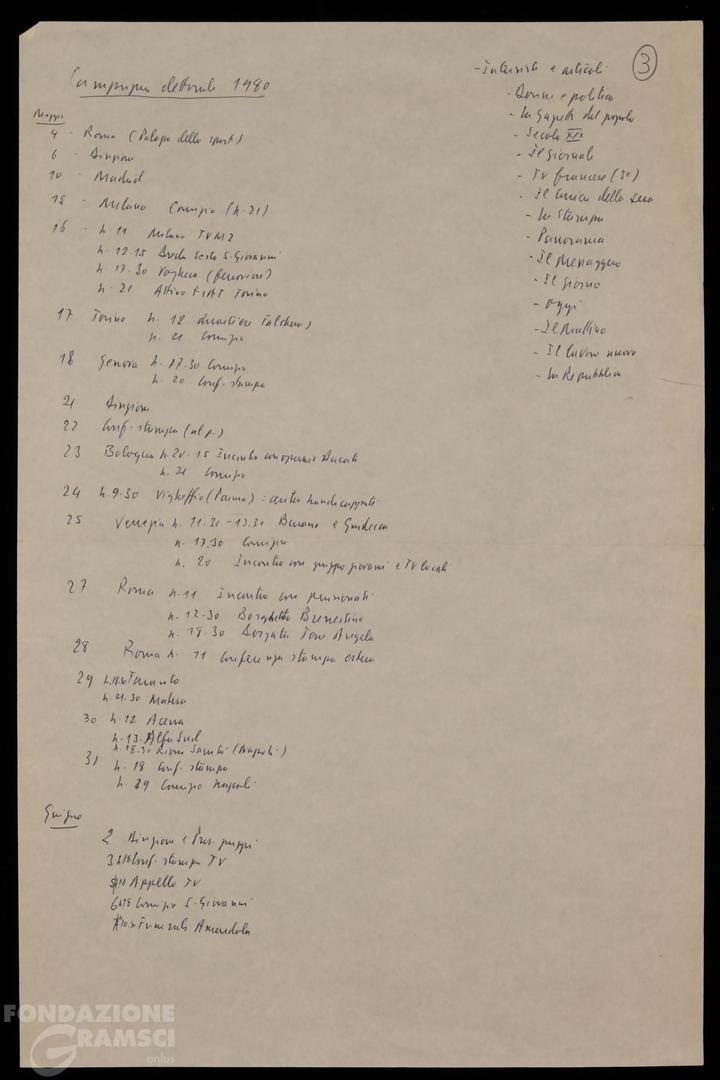 Campagna elettorale 1980
Maggio
4 - Roma (Palazzo dello sport)
6 - Direzione
10 - Madrid
15 - Milano Comizio (h. 21)
16 - h. 11 Milano TVM2
h. 12.15 Breda Sesto S. Giovanni
h. 17.30 Voghera (ferrovieri)
h. 21 Attivo FIAT Torino
17 Torino h. 12 (quartiere Falchera)
h. 21 Comizio
18 Genova h. 17.30 Comizio
h. 20 Conf. stampa
21 Direzione
22 Conf. stampa
23 Bologna h. 20.15 Incontro con operaie Ducati
h. 21 Comizio
24 h. 9.30 Vigheffio (Parma): centro handicappati
25 Venezia h. 11.30 - 13.30 Burano e Giudecca
h. 17.30 Comizio
h. 20 Incontro con gruppo giovani e TV locali
27 Roma h. 11 Incontro con pensionati
h. 17.30 Borghetto Prenestino
h. 18.30 Borgata Tor Angela
28 Roma h. 11 Conferenza stampa estera
29 Taranto
h. 21.30 Matera
30 h. 12 Acerra
h. 13 Alfa Sud
h. 18.30 Rione Sanità (Napoli)
31 h. 18 Conf. stampa
h. 19 Comizio Napoli
Giugno
2 Direzione e Pres. gruppi
3 Conf. stampa TV
Appello TV
6 Comizio S. Giovanni
Funerali Amendola
- Interviste e articoli
3
- Donne e politica
- La Gazzetta del popolo
- Secolo XIX
- Il giornale
- TV francese (30)
- Il Corriere della sera
- La Stampa
- Panorama
- Il Messaggero
- Il giorno
- Oggi
- Il Mattino
- Il lavoro nuovo
- La Repubblica
FONDAZIONE
GRAMSCI
onlus